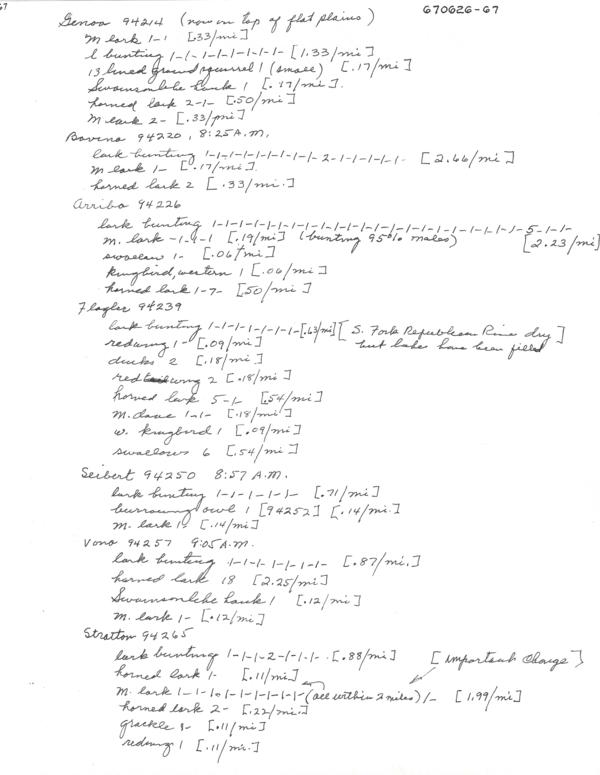 67
670626-67
Genoa 94214 (now on top of flat plains)
M lark 1-1 [.33/mi]
l bunting 1-1-1-1-1-1-1-1- [1.33/mi]
13 lined ground squirrel 1 (small) [.17/mi]
Swainsonlike hawk 1 [.17/mi].
horned lark 2-1- [.50/mi]
M lark 2- [.33/mi]
Bovina 94220, 8:25 A.M.
lark bunting 1-1-1-1-1-1-1-1-1- 2-1-1-1-1-1- [2.66/mi]
M lark 1- [.17/mi].
horned lark 2 [.33/mi.]
Arriba 94226
lark bunting 1-1-1-1-1-1-1-1-1-1-1-1-1-1-1-1-1-1-1-1-1-1-5-1-1-
M. lark -1-1-1 [.19/mi] (bunting 95% males) [2.23/mi]
swallow 1- [.06/mi]
kingbird, western 1 [.06/mi]
horned lark 1-7- [.50/mi]
Flagler 94239
lark bunting 1-1-1-1-1-1-1-[.63/mi] [S. Fork Republican River dry]
but lakes have been filled
redwing 1- [.09/mi]
ducks 2 [.18/mi]
redwing 2 [.18/mi]
horned lark 5-1- [.54/mi]
M. dove 1-1- [.18/mi]
w. kingbird 1 [.09/mi]
swallows 6 [.54/mi]
Seibert 94250 8:57 A.M.
lark bunting 1-1-1-1-1- [.71/mi]
burrowing owl 1 [94252] [.14/mi.]
M. lark 1- [.14/mi]
Vona 94257 9:05 A.M.
lark bunting 1-1-1-1-1-1-1- [.87/mi.]
horned lark 18 [2.25/mi]
Swainsonlike hawk 1 [.12/mi]
M. lark 1- [.12/mi]
Stratton 94265
lark bunting 1-1-1-2-1-1-1- [.88/mi] [Important Change]
horned lark 1- [.11/mi]
M. lark 1-1-10-1-1-1-1-1-1- (all within 2 miles) 1- [1.99/mi]
horned lark 2- [.22/mi.]
grackle 1- [.11/mi]
redwing 1 [.11/mi.]